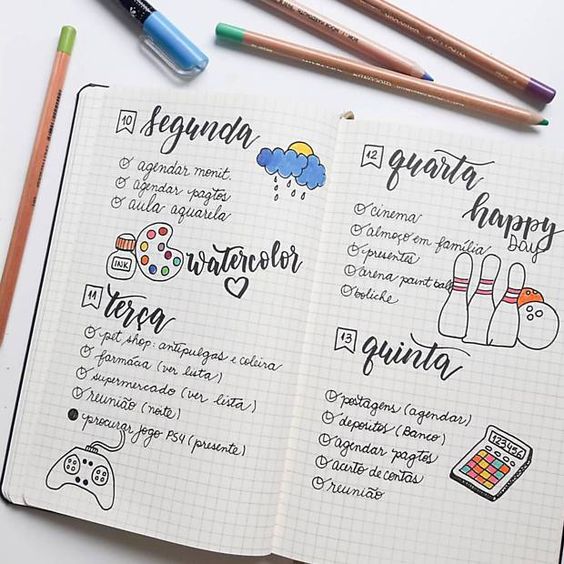 10 segunda
agendar monit.
agendar pagtos
aula aquarela
INK
watercolor
11 terça
pet shop: antipulgas e coleira
farmácia (ver lista)
supermercado (ver lista)
reunião (noite)
procurar jogo PS4 (presente)
12 quarta
happy
Day
cinema
almoço em família
presentes
arena paint ball
boliche
13 quinta
postagens (agendar)
depositos (Banco)
agendar pagtos
acerto de contas
reunião
123456